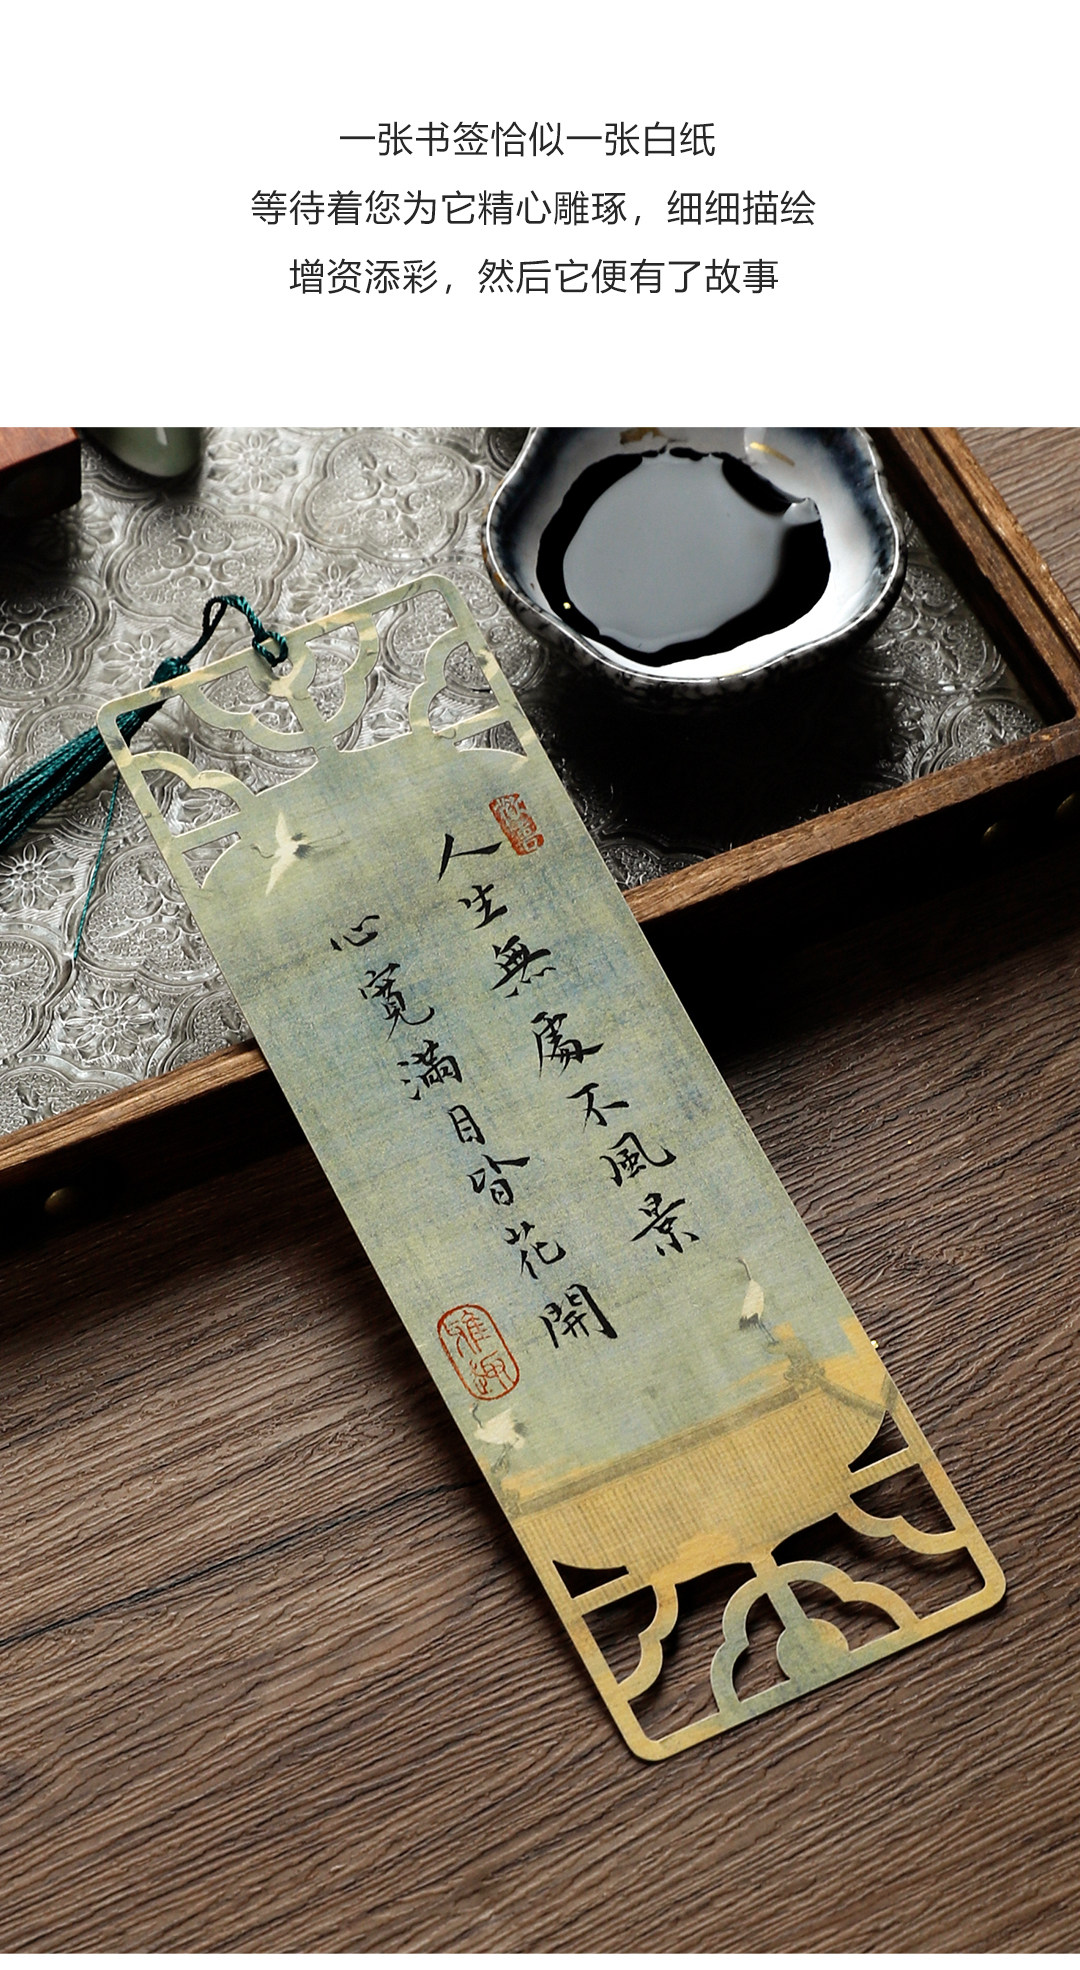 一张书签恰似一张白纸
等待着您为它精心雕琢，细细描绘
增资添彩，然后它便有了故事
人生無處不風景
心寬滿目皆花開
雅趣